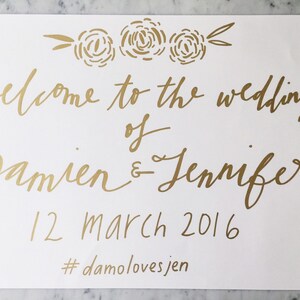 welcome to the wedding
of
Damien & Jennifer
12 March 2016
#damolovesjen